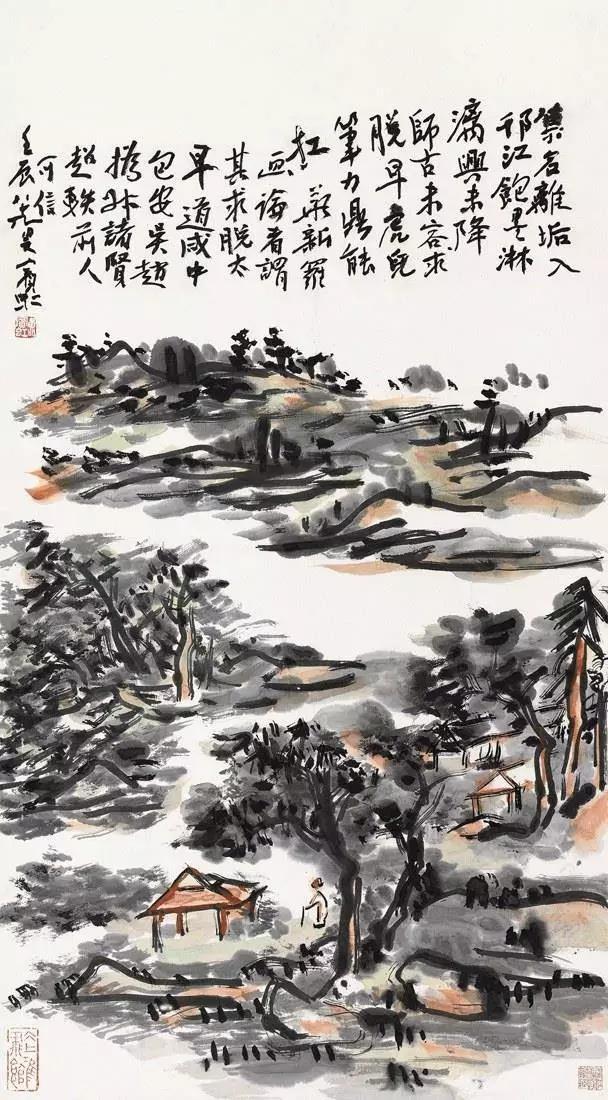 集名離垢入
邗江飽墨淋
漓興未降
師古未容求
脫早虎兒
筆力鼎能
扛 華新羅
画論者謂
其求脫太
早道咸中
包安吳趙
撝叔諸賢
超軼前人
可信
壬辰 叟賓虹